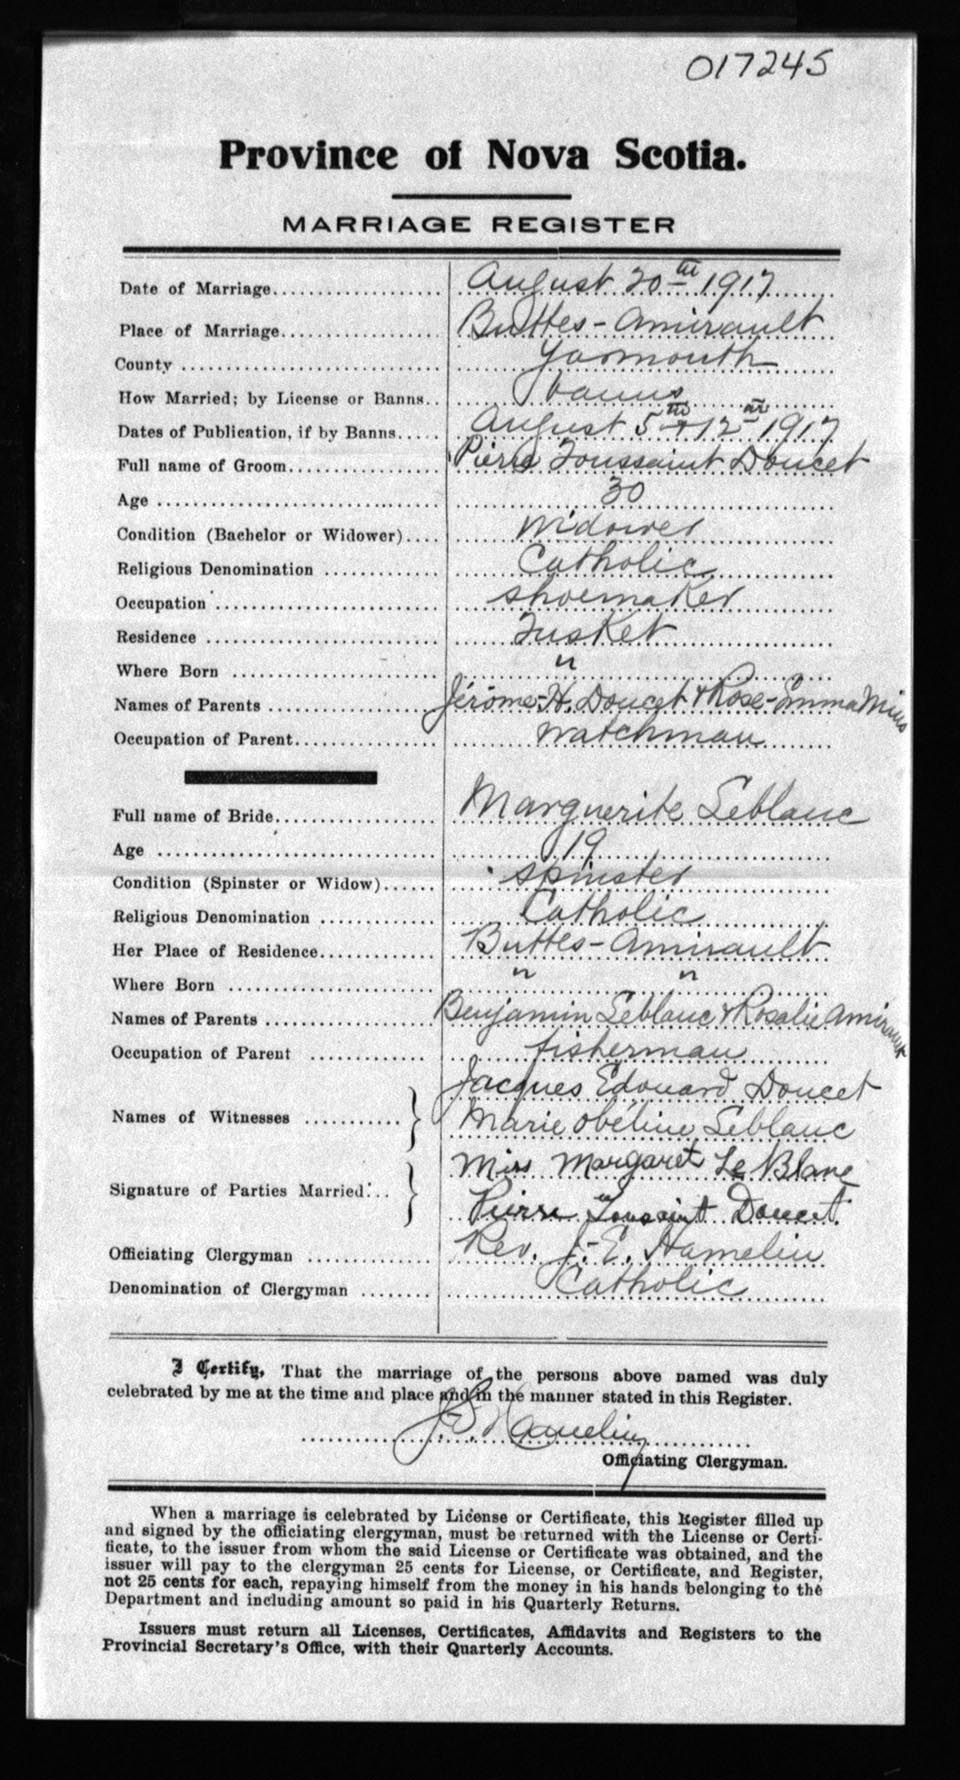 017245
Province of Nova Scotia.
MARRIAGE REGISTER
Date of Marriage.................... August 20th 1917
Place of Marriage................... Buttes-Amirault
County ............................. Yarmouth
How Married; by License or Banns.. banns
Dates of Publication, if by Banns..... August 5th + 12th 1917
Full name of Groom.................. Pierre Toussaint Doucet
Age ................................ 30
Condition (Bachelor or Widower).... Widower
Religious Denomination ............. Catholic
Occupation ......................... shoemaker
Residence .......................... Tusket
Where Born ......................... "
Names of Parents ................... Jérôme-H. Doucet & Rose-Emma Mius
Occupation of Parent................ Watchman
Full name of Bride.................. Marguerite Leblanc
Age ................................ 19
Condition (Spinster or Widow)...... spinster
Religious Denomination ............. Catholic
Her Place of Residence.............. Buttes-Amirault
Where Born ......................... " "
Names of Parents ................... Benjamin Leblanc & Rosalie Amirault
Occupation of Parent ............... fisherman
Jacques Edouard Doucet
Names of Witnesses ........... Marie Obéline Leblanc
Miss Margaret Le Blanc
Signature of Parties Married... Pierre Toussaint Doucet.
Officiating Clergyman .............. Rev. J.-E. Hamelin
Denomination of Clergyman ........ Catholic
I Certify, That the marriage of the persons above named was duly
celebrated by me at the time and place and in the manner stated in this Register.
J. E. Hamelin
Officiating Clergyman.
When a marriage is celebrated by License or Certificate, this Register filled up
and signed by the officiating clergyman, must be returned with the License or Certi-
ficate, to the issuer from whom the said License or Certificate was obtained, and the
issuer will pay to the clergyman 25 cents for License, or Certificate, and Register,
not 25 cents for each, repaying himself from the money in his hands belonging to the
Department and including amount so paid in his Quarterly Returns.
Issuers must return all Licenses, Certificates, Affidavits and Registers to the
Provincial Secretary's Office, with their Quarterly Accounts.